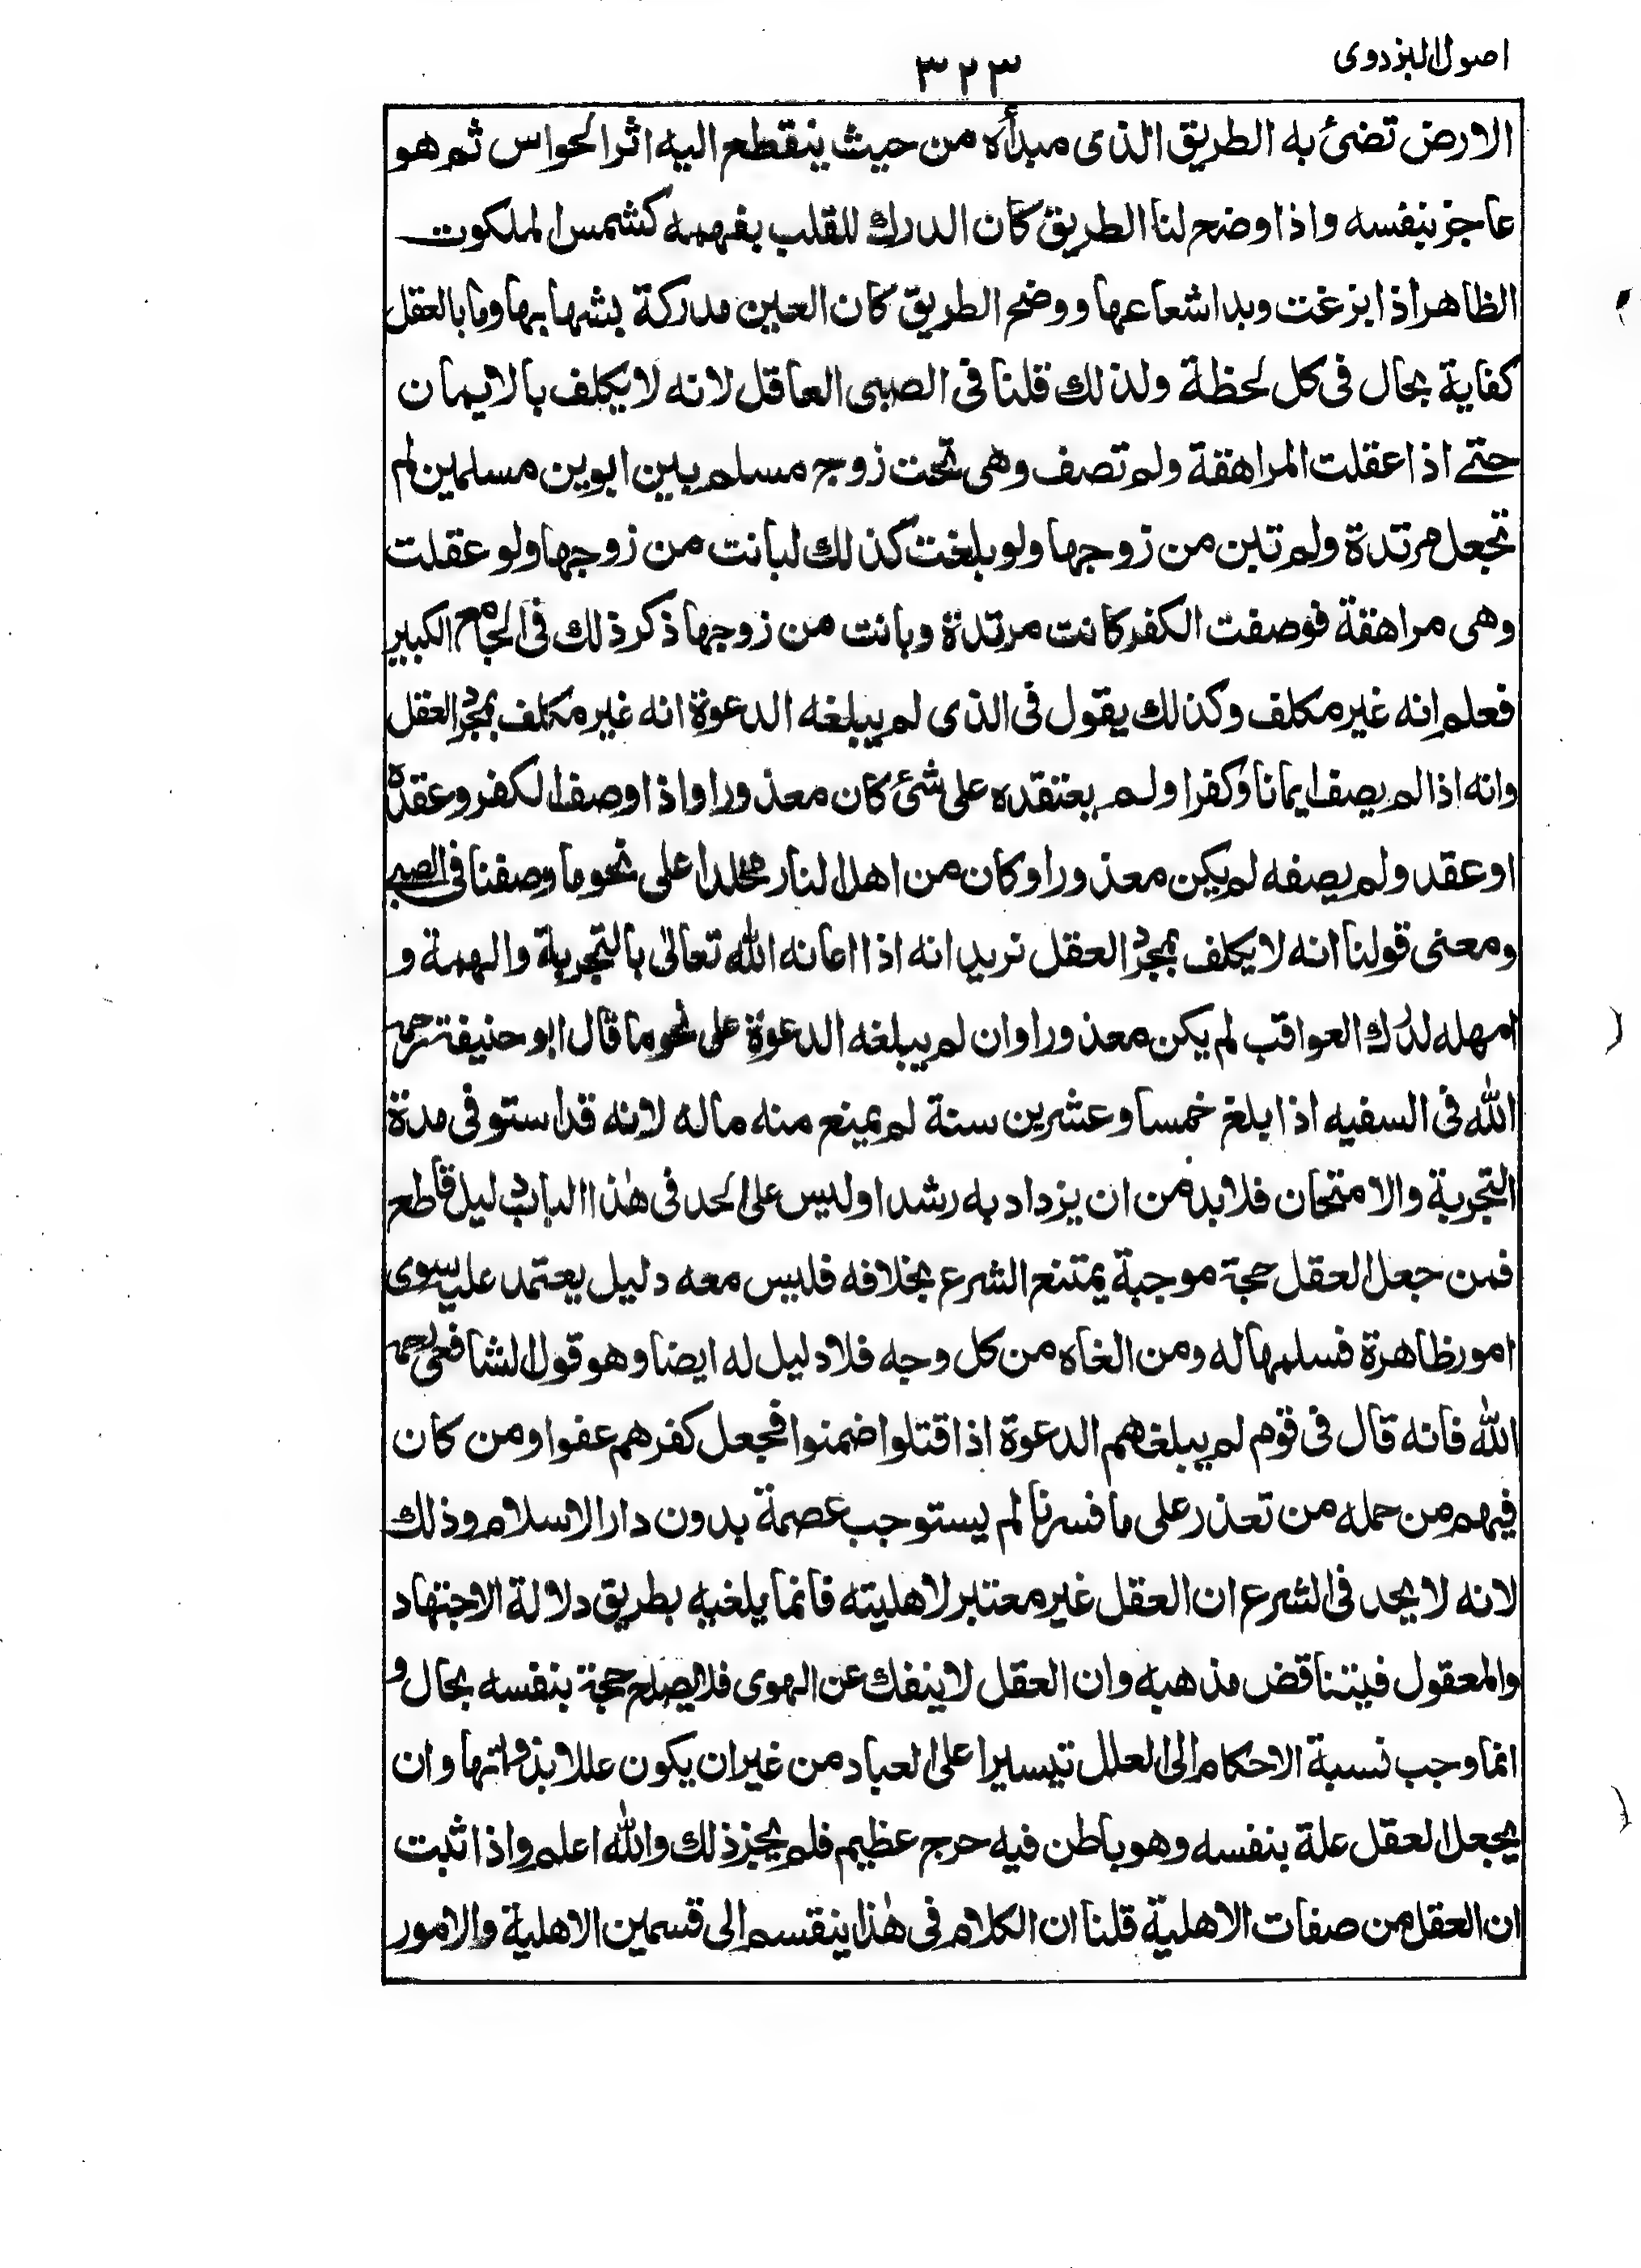 اصول البزدوى
٣٢٣
الارض تضئ به الطريق الذى مبدأه من حيث ينقطع اليه اثر الحواس ثم هو
عاجز بنفسه واذا وضح لنا الطريق كان الدرك للقلب بفهمه كشمس الملكوت
الظاهر اذا بزغت وبدا شعاعها ووضح الطريق كان العين مدركة بشهابها وما بالعقل
كفاية بحال فى كل لحظة ولذلك قلنا فى الصبى العاقل لانه لا يكلف بالايمان
حتے اذا عقلت المراهقة ولم تصف وهى تحت زوج مسلم بين ابوين مسلمين لم
تجعل مرتدة ولم تبن من زوجها ولو بلغت كذلك لبانت من زوجها ولو عقلت
وهى مراهقة فوصفت الكفر كانت مرتدة وبانت من زوجها ذكر ذلك فى الجامع الكبير
فعلم انه غير مكلف وكذلك يقول فى الذى لم يبلغه الدعوة انه غير مكلف بمجرد العقل
وانه اذا لم يصف ايمانا وكفرا ولم يعتقده على شئ كان معذورا واذا وصف الكفر وعقده
او عقد ولم يصفه لم يكن معذورا وكان من اهل النار مخلدا على نحو ما وصفنا فى الصبے
ومعنى قولنا انه لا يكلف بمجرد العقل نريد انه اذا اعانه الله تعالى بالتجربة والهمة و
امهله لدرك العواقب لم يكن معذورا وان لم يبلغه الدعوة على نحو ما قال ابو حنيفة رحمه
الله فى السفيه اذا بلغ خمسا وعشرين سنة لم يمنع منه ماله لانه قد استوفى مدة
التجربة والامتحان فلا بد من ان يزداد به رشدا وليس على الحد فى هٰذا الباب دليل قاطع
فمن جعل العقل حجة موجبة يمتنع الشرع بخلافه فليس معه دليل يعتمد عليه سوى
امور ظاهرة فسلمها له ومن الغاه من كل وجه فلا دليل له ايضا وهو قول الشافعى رحمه
الله فانه قال فى قوم لم يبلغهم الدعوة اذا قتلوا ضمنوا فجعل كفرهم عفوا ومن كان
فيهم من حمله من تعذر على ما فسرنا لم يستوجب عصمة بدون دار الاسلام وذلك
لانه لا يجد فى الشرع ان العقل غير معتبر لاهليته فانما يلغيه بطريق دلالة الاجتهاد
والمعقول فيتناقض مذهبه وان العقل لا ينفك عن الهوى فلا يصلح حجة بنفسه بحال و
انما وجب نسبة الاحكام الى العلل تيسيرا على العباد من غير ان يكون عللا بذواتها وان
يجعل العقل علة بنفسه وهو باطن فيه حرج عظيم فلم يجز ذلك والله اعلم واذا ثبت
ان العقل من صفات الاهلية قلنا ان الكلام فى هٰذا ينقسم الى قسمين الاهلية والامور